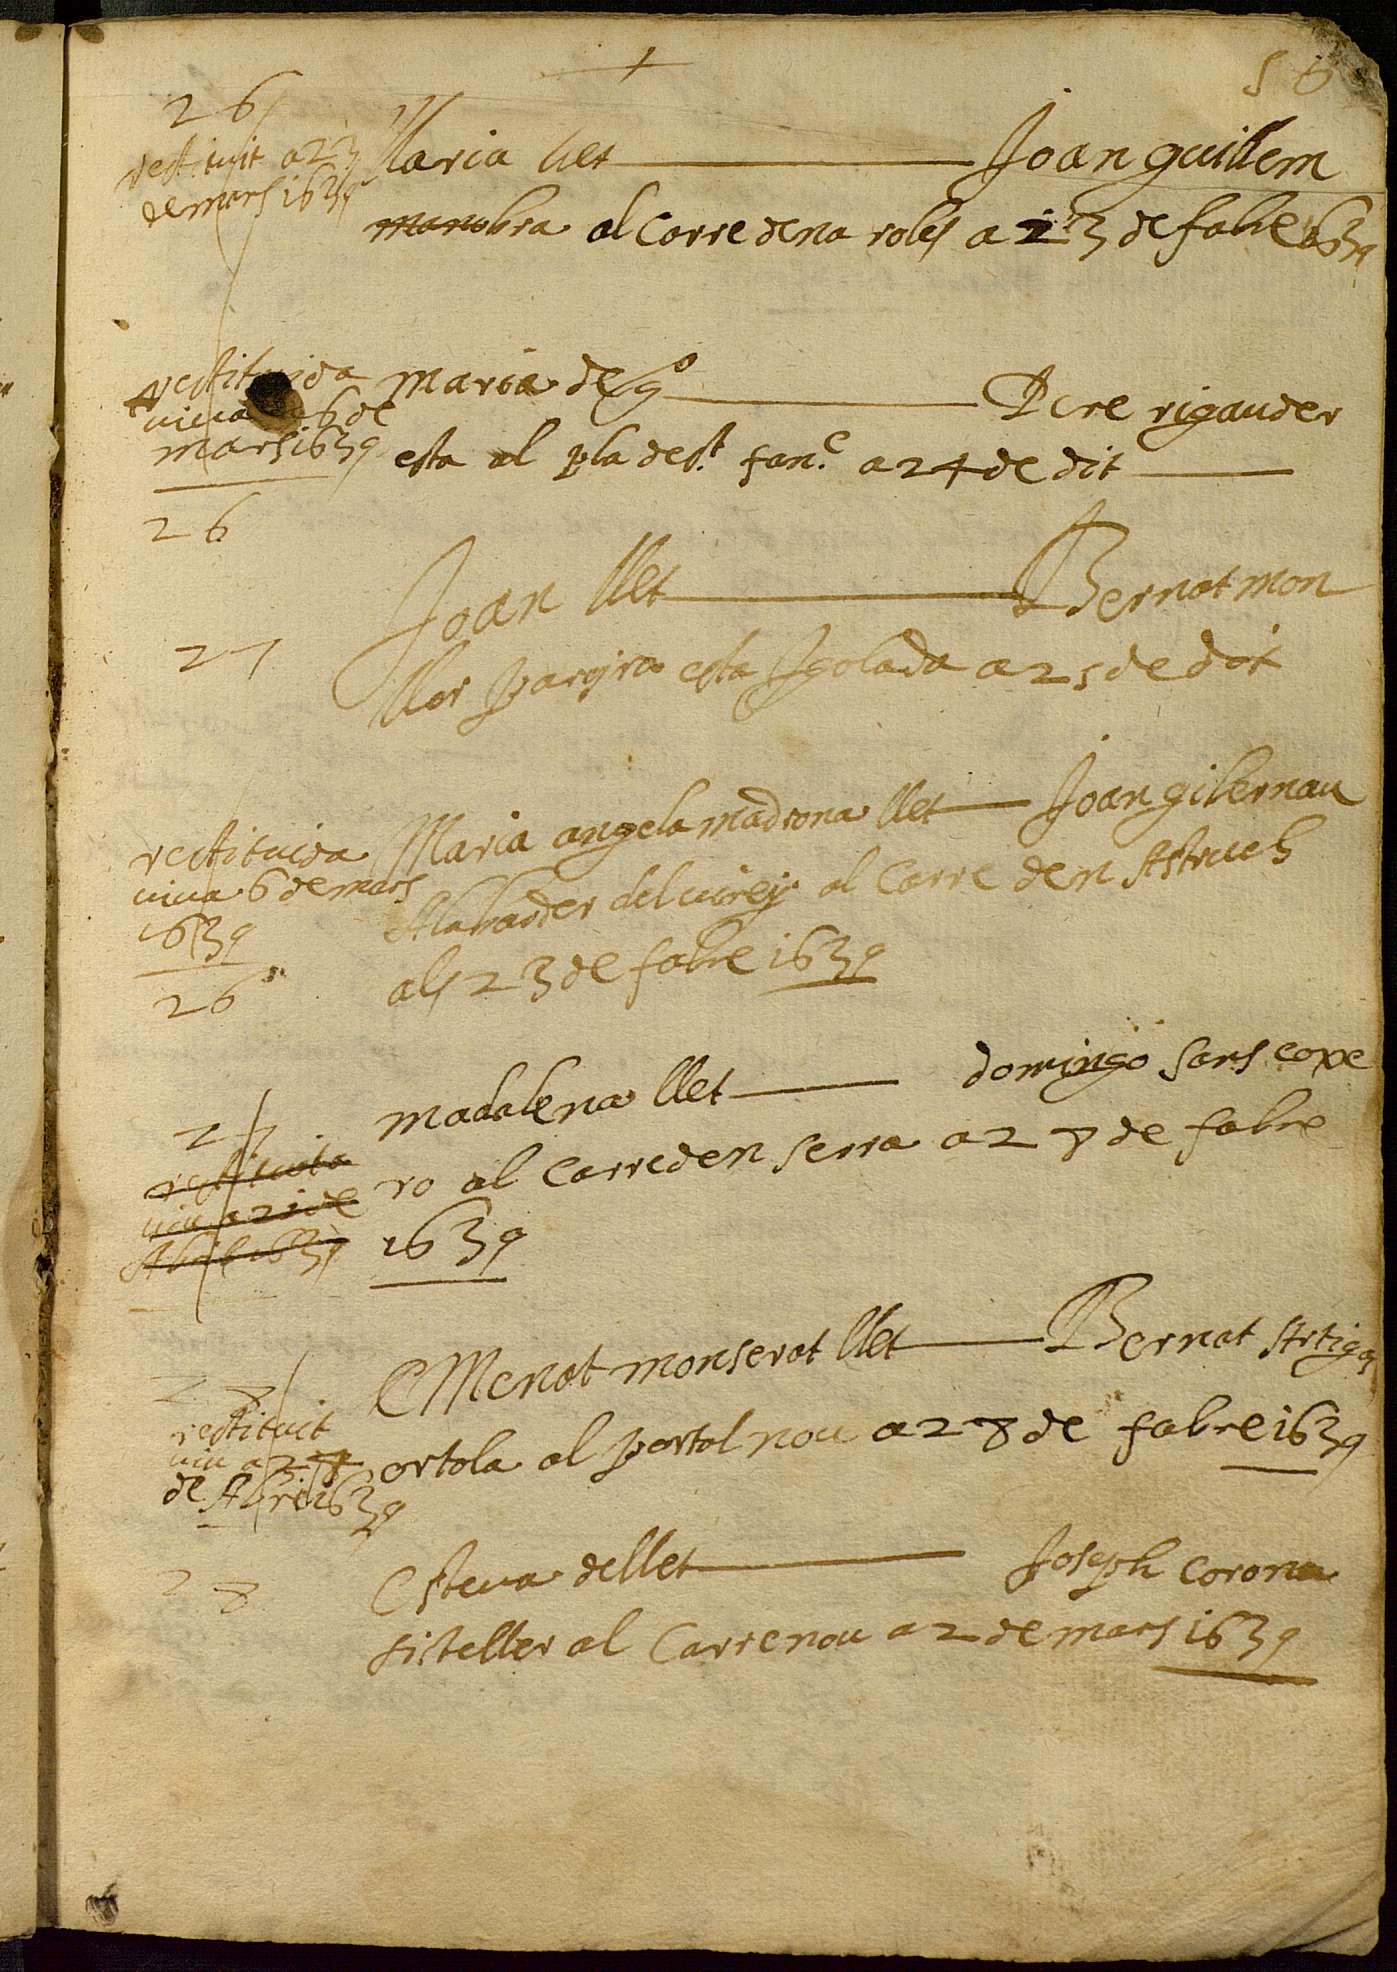 +
56
26
restituit a 23
de mars 1639
Maria llet — Joan guillem
manobra al Carre de na robes a 23 de fabre 1639
restituida
viva a 6 de
mars 1639
26
maria de g.º — Pere rigauder
esta al pla de s.t fran.c a 24 de dit
27
Joan llet — Bernat mon
llor parayra esta Igolada a 25 de dit
restituida
viva 6 de mars
1639
26
Maria angela madrona llet — Joan gibernau
Alabarder del virey al Carre den Astruch
als 23 de fabre 1639
27
restituida
viu a 21 de
Abril 1639
madalena llet — domingo sans cope
ro al Carre den serra a 27 de fabre
1639
28
restituit
viu a 27
de Abril 1639
Menat monserat llet — Bernat Artigas
ortola al portal nou a 28 de fabre 1639
28
Esteva de llet — Joseph Corona
sisteller al Carre nou a 2 de mars 1639